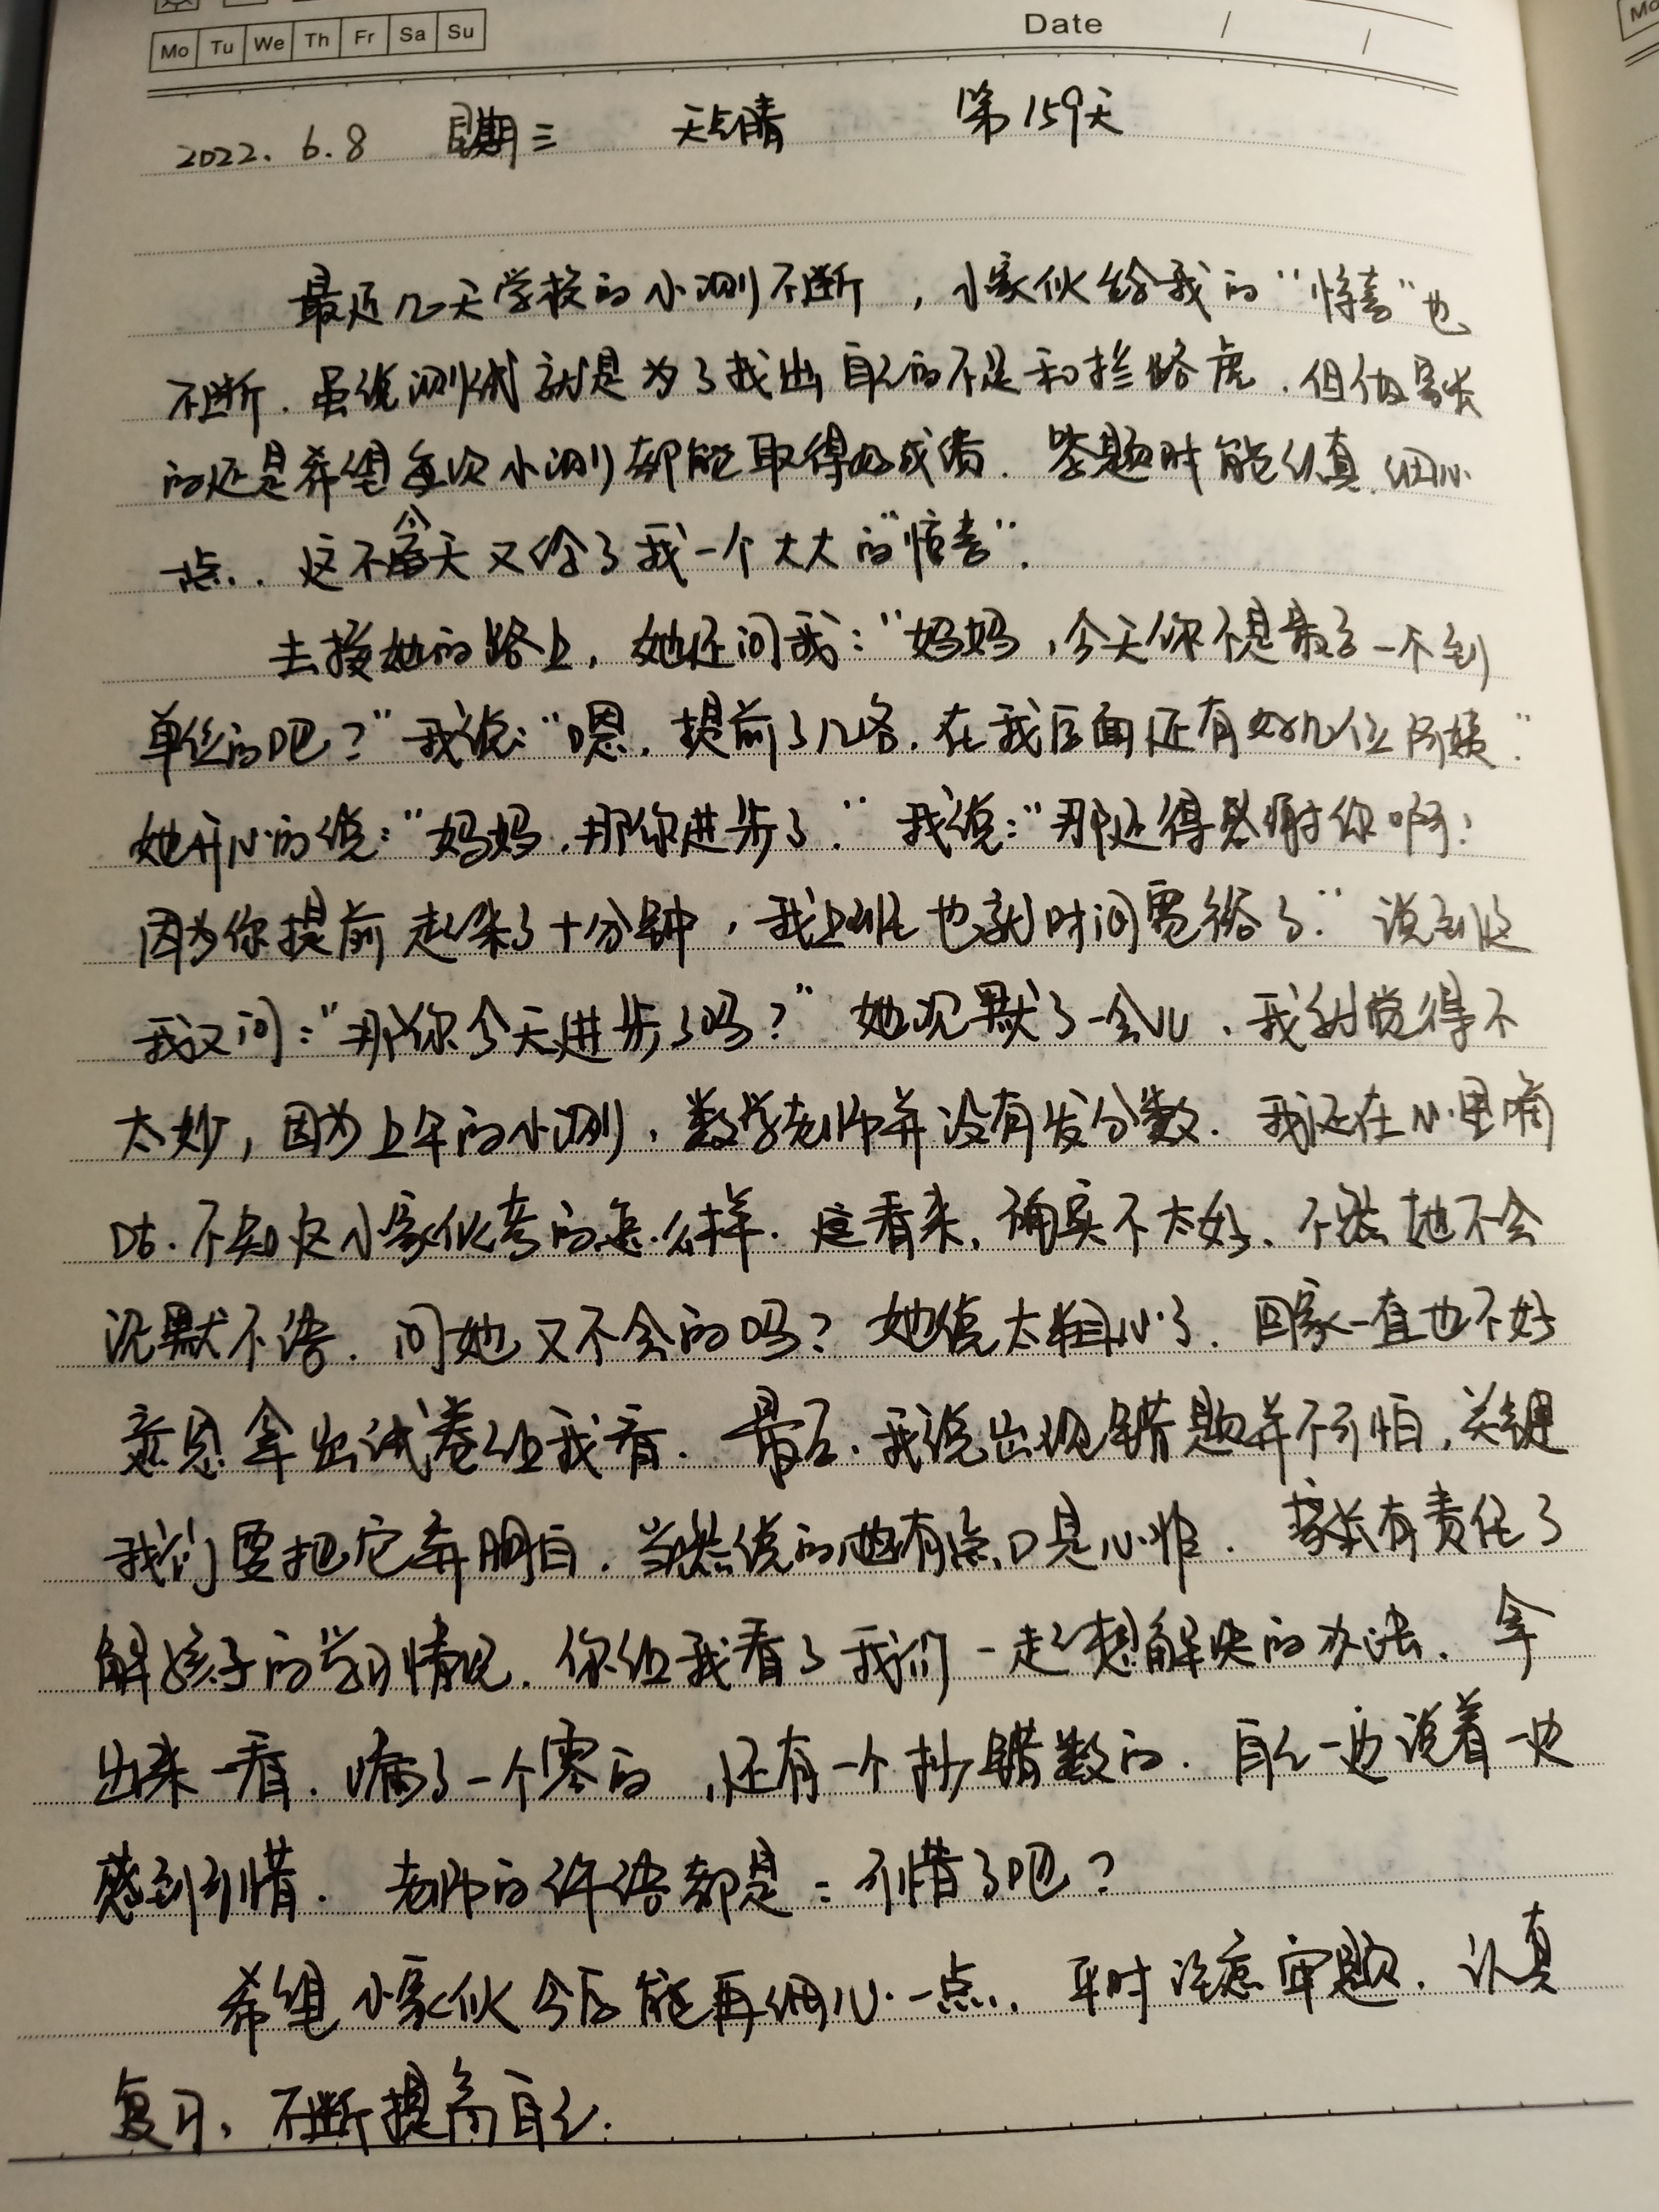 Mo Tu We Th Fr Sa Su
Date / /
2022. 6. 8 星期三 天气晴 第159天
最近几天学校的小测不断，小家伙给我的“惊喜”也
不断。虽说测试就是为了找出自己的不足和拦路虎，但做家长
的还是希望每次小测都能取得好成绩。答题时能认真、细心
一点。这不今天又给了我一个大大的“惊喜”。
去接她的路上，她还问我：“妈妈，今天你不是最后一个到
单位的吧？”我说：“嗯，提前了几名，在我后面还有好几位阿姨。”
她开心的说：“妈妈，那你进步了。”我说：“那还得感谢你啊！
因为你提前起来了十分钟，我上班也就时间宽裕了。”说到这
我又问：“那你今天进步了吗？”她沉默了一会儿，我就觉得不
太妙，因为上午的小测，数学老师并没有发分数。我还在心里嘀
咕，不知这小家伙考的怎么样。这看来，确实不太好，不然她不会
沉默不语。问她又不会的吗？她说太粗心了。回家一直也不好
意思拿出试卷给我看。最后，我说出现错题并不可怕，关键
我们要把它弄明白。当然说的也有点口是心非。家长有责任了
解孩子的学习情况，你给我看了我们一起想解决的办法。拿
出来一看，漏了一个零的，还有一个抄错数的。自己一边说着一边
感到可惜。老师的评语都是：可惜了吧？
希望小家伙今后能再细心一点，平时注意审题，认真
复习，不断提高自己。